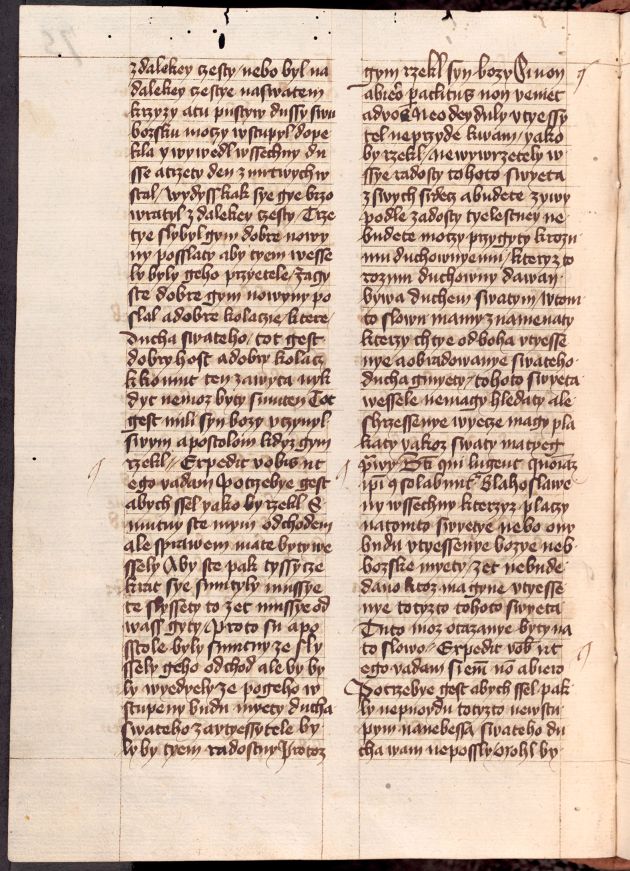 zdalekey czesty / nebo byl na
dalekey czestye naswatem
krzyzy atu pustyw dussy swu
bozsku moczy wstupyl dope
kla y wywedl wssechny du
sse atrzety den zmrtwych w
stal / wydyss kak sye gye brzo
wratyl zdalekey czesty / Trze
tye slybyl gym dobre nowy
ny possłaty aby tyem wesse
ly byly geho przyetele / zagy
ste dobre gym nowyny po
slal adobre kolacze / ktere /
ducha swateho / tot gest
dobry host adobry kolacz
kkomut ten zawyta nyk
dyt nemoz byty smuten Tot
gest mili syn bozy vczynyl
swym apostolom kdyz gym
rzekl / Expedit vobis ut
ego vadam Potrzebye gest
abych ssel yako by rzekl S
mutny ste mym odchodem
ale sprawem mate byty we
ssely Aby ste pak tyssycze
krat sye smutyly mussye
te slyssety to zet mussye od
wass gyty / Proto su apo
sstole byly smutny ze sly
ssely geho odchod ale by by
ly wyedyely ze pogeho w
stupeny budu myety ducha
swateho zavtyessytele by
ly by tyem radostny Protoz
gym rzekl syn bozy Si non
abiero paclitus non veniet
ad vos Neodeyduly vtyessy
tel neprzyde kwam / yako
by rzekl / newywrzetely w
ssye radosty tohoto swyeta
zswych srdecz abudete zywy
podle zadosty tyelestney ne
budete moczy przygyty krozu
mu duchownyemu / kteryz to
rozum duchowny dawan
bywa duchem swatym / wtom
to slowu mamy znamenaty
kterzy chtye odboha vtyesse
nye aobradowanye swateho
ducha gmyety / tohoto swyeta
wessele nemagy hledaty ale
skrzessenye wyecze magy pla
katy yakoz swaty matyeg
prwy Bti qui lugent quoniam
ipi 9solabuntr Blahoslawe
ny wssechny kterzyz placzy
natomto swyetye nebo ony
budu vtyessenye bozye neb
bozske myety / zet nebude
dano ktoz ma gyne vtyesse
nye totyzto tohoto swyeta
Tuto moz otazanye byty na
to slowo / Expedit vob ut
ego vadam si em no abiero
Potrzebye gest abych ssel pak
ly nepuoydu totyzto newstu
pym nanebessa swateho du
cha wam nepossly Mohl by